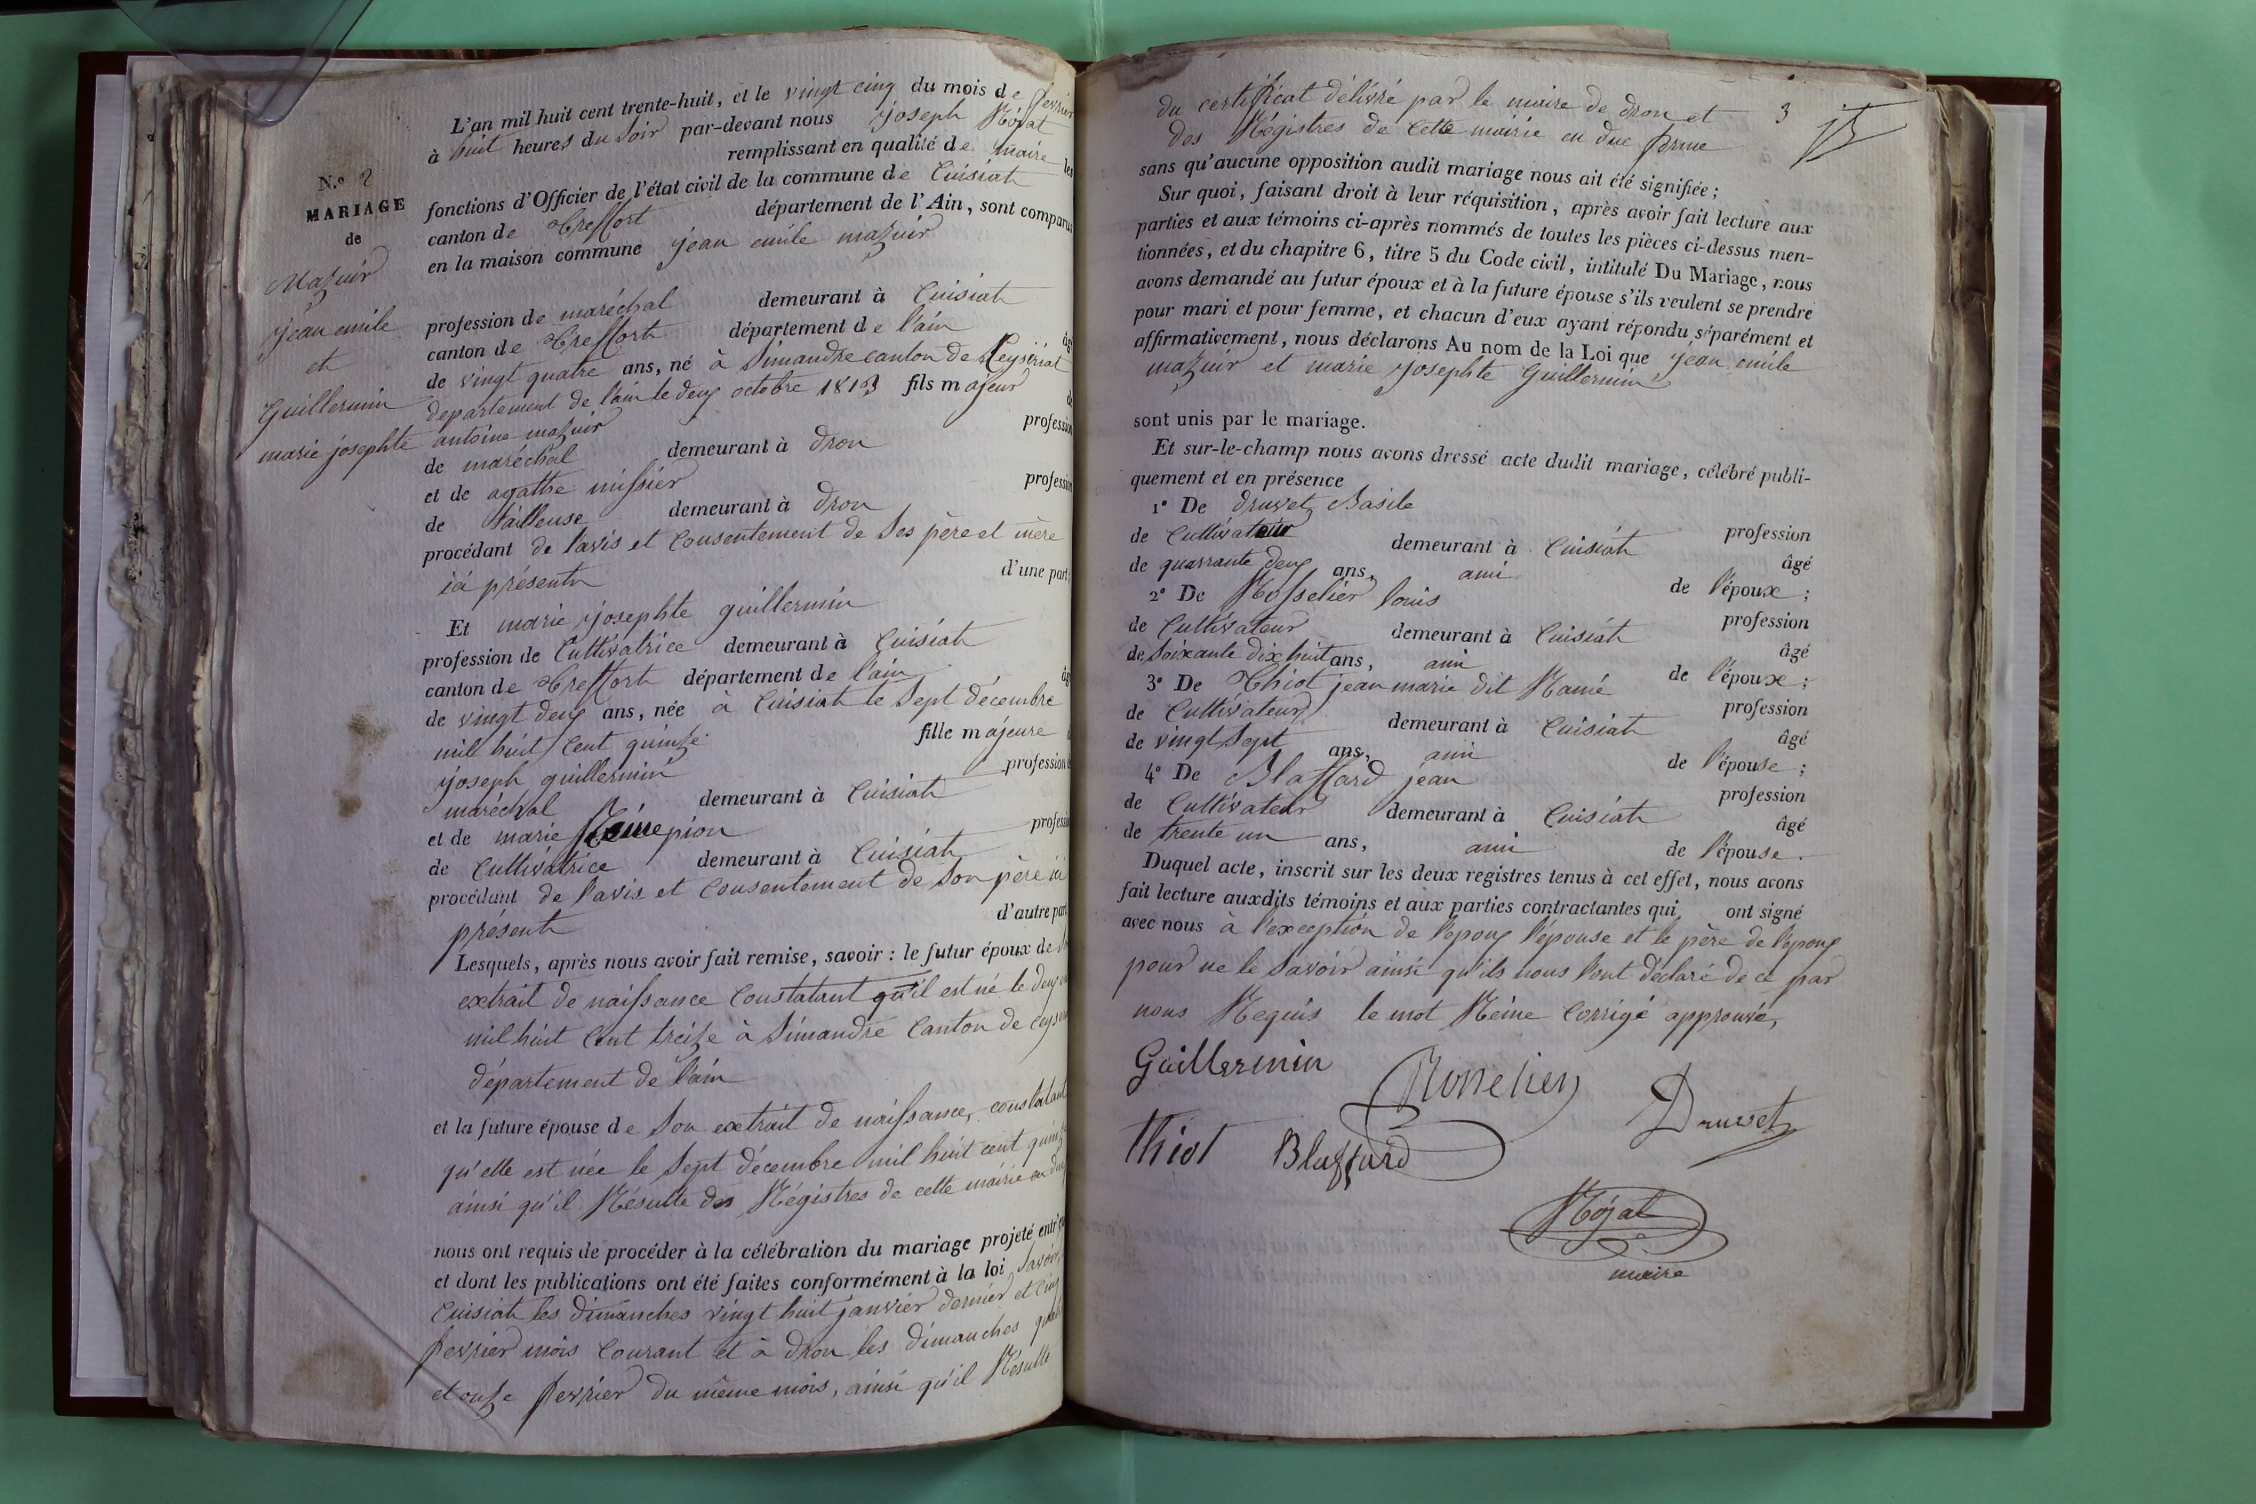 N.o 2
MARIAGE
de
Mazuir
jean emile
et
Guillermin
marie josephte
L'an mil huit cent trente-huit, et le vingt cinq du mois de fevrier
à huit heures du soir par-devant nous joseph Rójat
remplissant en qualité de maire les
fonctions d'Officier de l'état civil de la commune de Cuisiat
canton de treffort département de l'Ain, sont comparus
en la maison commune jean emile mazuir
profession de maréchal demeurant à Cuisiat
canton de treffort département de l'ain âg
de vingt quatre ans, né à Simandre canton de Ceyzériat
departement de l'ain le deux octobre 1813 fils majeur de
antoine mazuir profession
de maréchal demeurant à dron
et de agathe missier profession
de tailleuse demeurant à dron
procédant de l'avis et consentement de ses père et mère
ici présents d'une part;
Et marie josephte guillermin
profession de Cultivatrice demeurant à Cuisiat
canton de treffort département de l'ain âg
de vingt deux ans, née à Cuisiat le sept décembre
mil huit cent quinze fille majeure
joseph guillermin profession
maréchal demeurant à Cuisiat
et de marie Réine pion profession
de Cultivatrice demeurant à Cuisiat
procédant de l'avis et consentement de son père ici
présent d'autre part
Lesquels, après nous avoir fait remise, savoir : le futur époux de
extrait de naissance constatant qu'il est né le deux
mil huit cent treize à Simandre Canton de
département de l'ain
et la future épouse de son extrait de naissance, constatant
qu'elle est née le sept décembre mil huit cent quinze
ainsi qu'il Résulte des Régistres de cette mairie en due
nous ont requis de procéder à la célébration du mariage projeté entr'
et dont les publications ont été faites conformément à la loi savoir
Cuisiat les dimanches vingt huit janvier dernier et cinq
fevrier mois courant et à dron les dimanches
et onze fevrier du même mois, ainsi qu'il Résulte
3
du certificat délivré par le maire de dron et
des Régistres de cette mairie en due forme
sans qu'aucune opposition audit mariage nous ait été signifiée;
Sur quoi, faisant droit à leur réquisition, après avoir fait lecture aux
parties et aux témoins ci-après nommés de toutes les pièces ci-dessus men-
tionnées, et du chapitre 6, titre 5 du Code civil, intitulé Du Mariage, nous
avons demandé au futur époux et à la future épouse s'ils veulent se prendre
pour mari et pour femme, et chacun d'eux ayant répondu séparément et
affirmativement, nous déclarons Au nom de la Loi que jean emile
mazuir et marie josephte Guillermin
sont unis par le mariage.
Et sur-le-champ nous avons dressé acte dudit mariage, célébré publi-
quement et en présence
1° De druvet Basile profession
de Cultivateur demeurant à Cuisiat âgé
de quarrante deux ans, ami de l'époux;
2° De Rosselier louis profession
de Cultivateur demeurant à Cuisiat âgé
de Soixante dix huit ans, ami de l'époux;
3° De Thiot jean marie dit Ramé profession
de Cultivateur demeurant à Cuisiat âgé
de vingt sept ans, ami de l'épouse;
4° De Blaffard jean profession
de Cultivateur demeurant à Cuisiat âgé
de trente un ans, ami de l'épouse.
Duquel acte, inscrit sur les deux registres tenus à cet effet, nous avons
fait lecture auxdits témoins et aux parties contractantes qui ont signé
avec nous à l'exception de l'époux l'épouse et le père de l'époux
pour ne le savoir ainsi qu'ils nous l'ont déclaré de ce par
nous Requis le mot Réine corrigé approuvé,
Guillermin
Rosselier
Druvet
Thiot
Blaffard
Rójat
maire